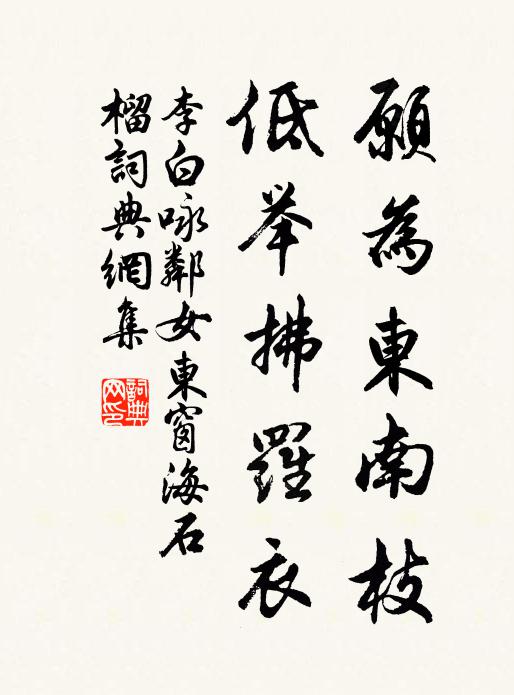 願為東南枝
低举拂羅衣
李白咏鄰女東窗海石
榴詞典網集
詞典
网印